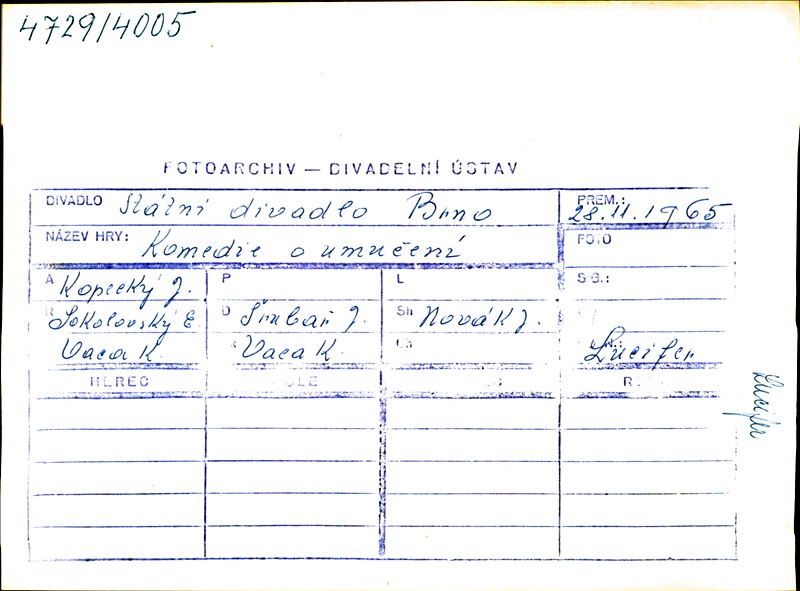 4729/4005
FOTOARCHIV — DIVADELNÍ ÚSTAV
DIVADLO Státní divadlo Brno PREM.: 28.11.1965
NÁZEV HRY: Komedie o umučení FOTO
A Kopecký J. P L SIG.:
R Sokolovský E. D Šrubař J. Sh Novák J.
Vaca K. Vaca K. Lucifer
HEREC
Lucifer